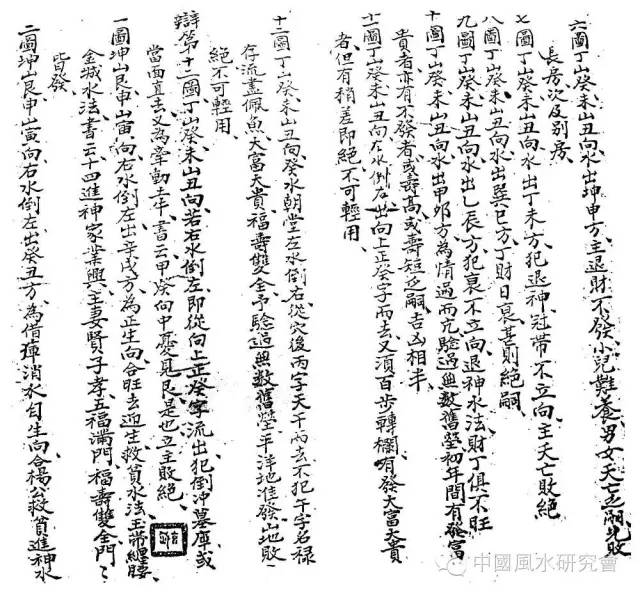 六圖丁山癸未山丑向水出坤申方主退財不發小兒難養男女夭亡乏嗣先敗
長房次及別房
七圖丁山癸未山丑向水出丁未方犯退神冠帶不立向主夭亡敗絕
八圖丁山癸未山丑向水出巽巳方丁財日衰甚則絕嗣
九圖丁山癸未山丑向水出乙辰方犯衰不立向退神水法財丁俱不旺
十圖丁山癸未山丑向水出甲卯方為情過而亢驗過無数舊墳初年間有發富
貴者亦有不發者或壽高或壽短乏嗣吉凶相半
十一圖丁山癸未山丑向左水倒右出向上正癸字而去又須百步轉欄有發大富大貴
者但有稍差即絕不可輕用
十二圖丁山癸未山丑向癸水朝堂左水倒右從穴後丙字天干而去不犯午字名祿
存流盡佩魚大富大貴福壽雙全予驗過無数舊塋平洋地准發山地敗
絕不可輕用
辯第十二圖丁山癸未山丑向若右水倒左即從向上正癸字流出犯倒冲墓庫或
當面直去又為牽動土牛書云甲癸向中憂見艮是也立主敗絕
一圖坤山艮申山寅向右水倒左出辛戌方為正生向合旺去迎生救貧水法玉帶纏腰
金城水法書云十四進神家業興主妻賢子孝五福滿門福壽雙全門門
皆發
二圖坤山艮申山寅向右水倒左出癸丑方為借庫消水自生向合楊公救貧進神水
中國風水研究會